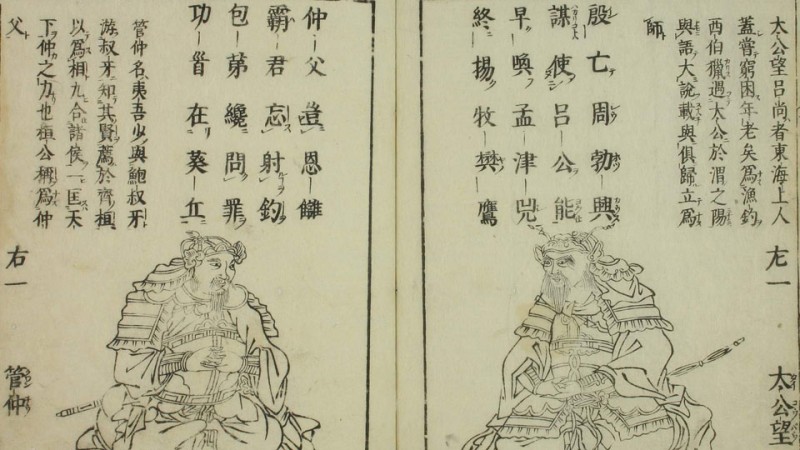 太公望呂尚者東海上人
蓋嘗窮困年老矣爲漁釣
西伯獵遇太公於渭之陽
與語大說載與俱歸立爲
師
殷亡周勃興
謀使呂公能
早喚孟津兕
終揚牧樊鷹
左一
太公望
仲父豈恩讎
霸君忘射鈎
包茅纔問罪
功首在葵丘
管仲名夷吾少與鮑叔牙
游叔牙知其賢薦於齊桓
以爲相九合諸侯一匡天
下仲之力也桓公稱爲仲
父
右一
管仲